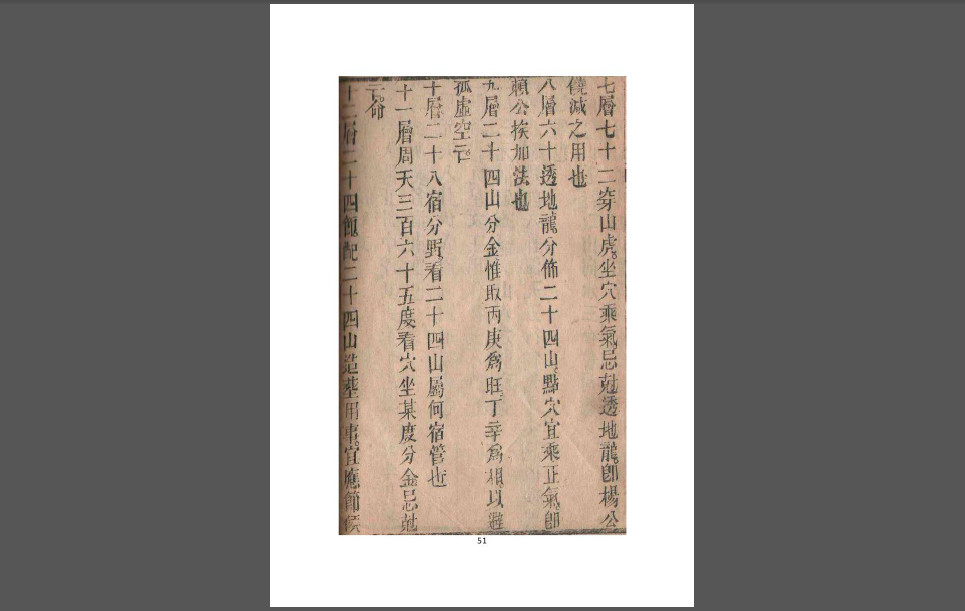 七層七十二穿山虎坐穴乘氣忌尅透地龍卽楊公
饒減之用也
八層六十透地龍分佈二十四山點穴宜乘正氣卽
賴公挨加法也
九層二十四山分金惟取丙庚爲旺丁辛爲相以避
孤虛空亡
十層二十八宿分野看二十四山屬何宿管也
十一層周天三百六十五度看穴坐某度分金忌尅
亡命
十二層二十四氣配二十四山造塟用事宜應節候
51